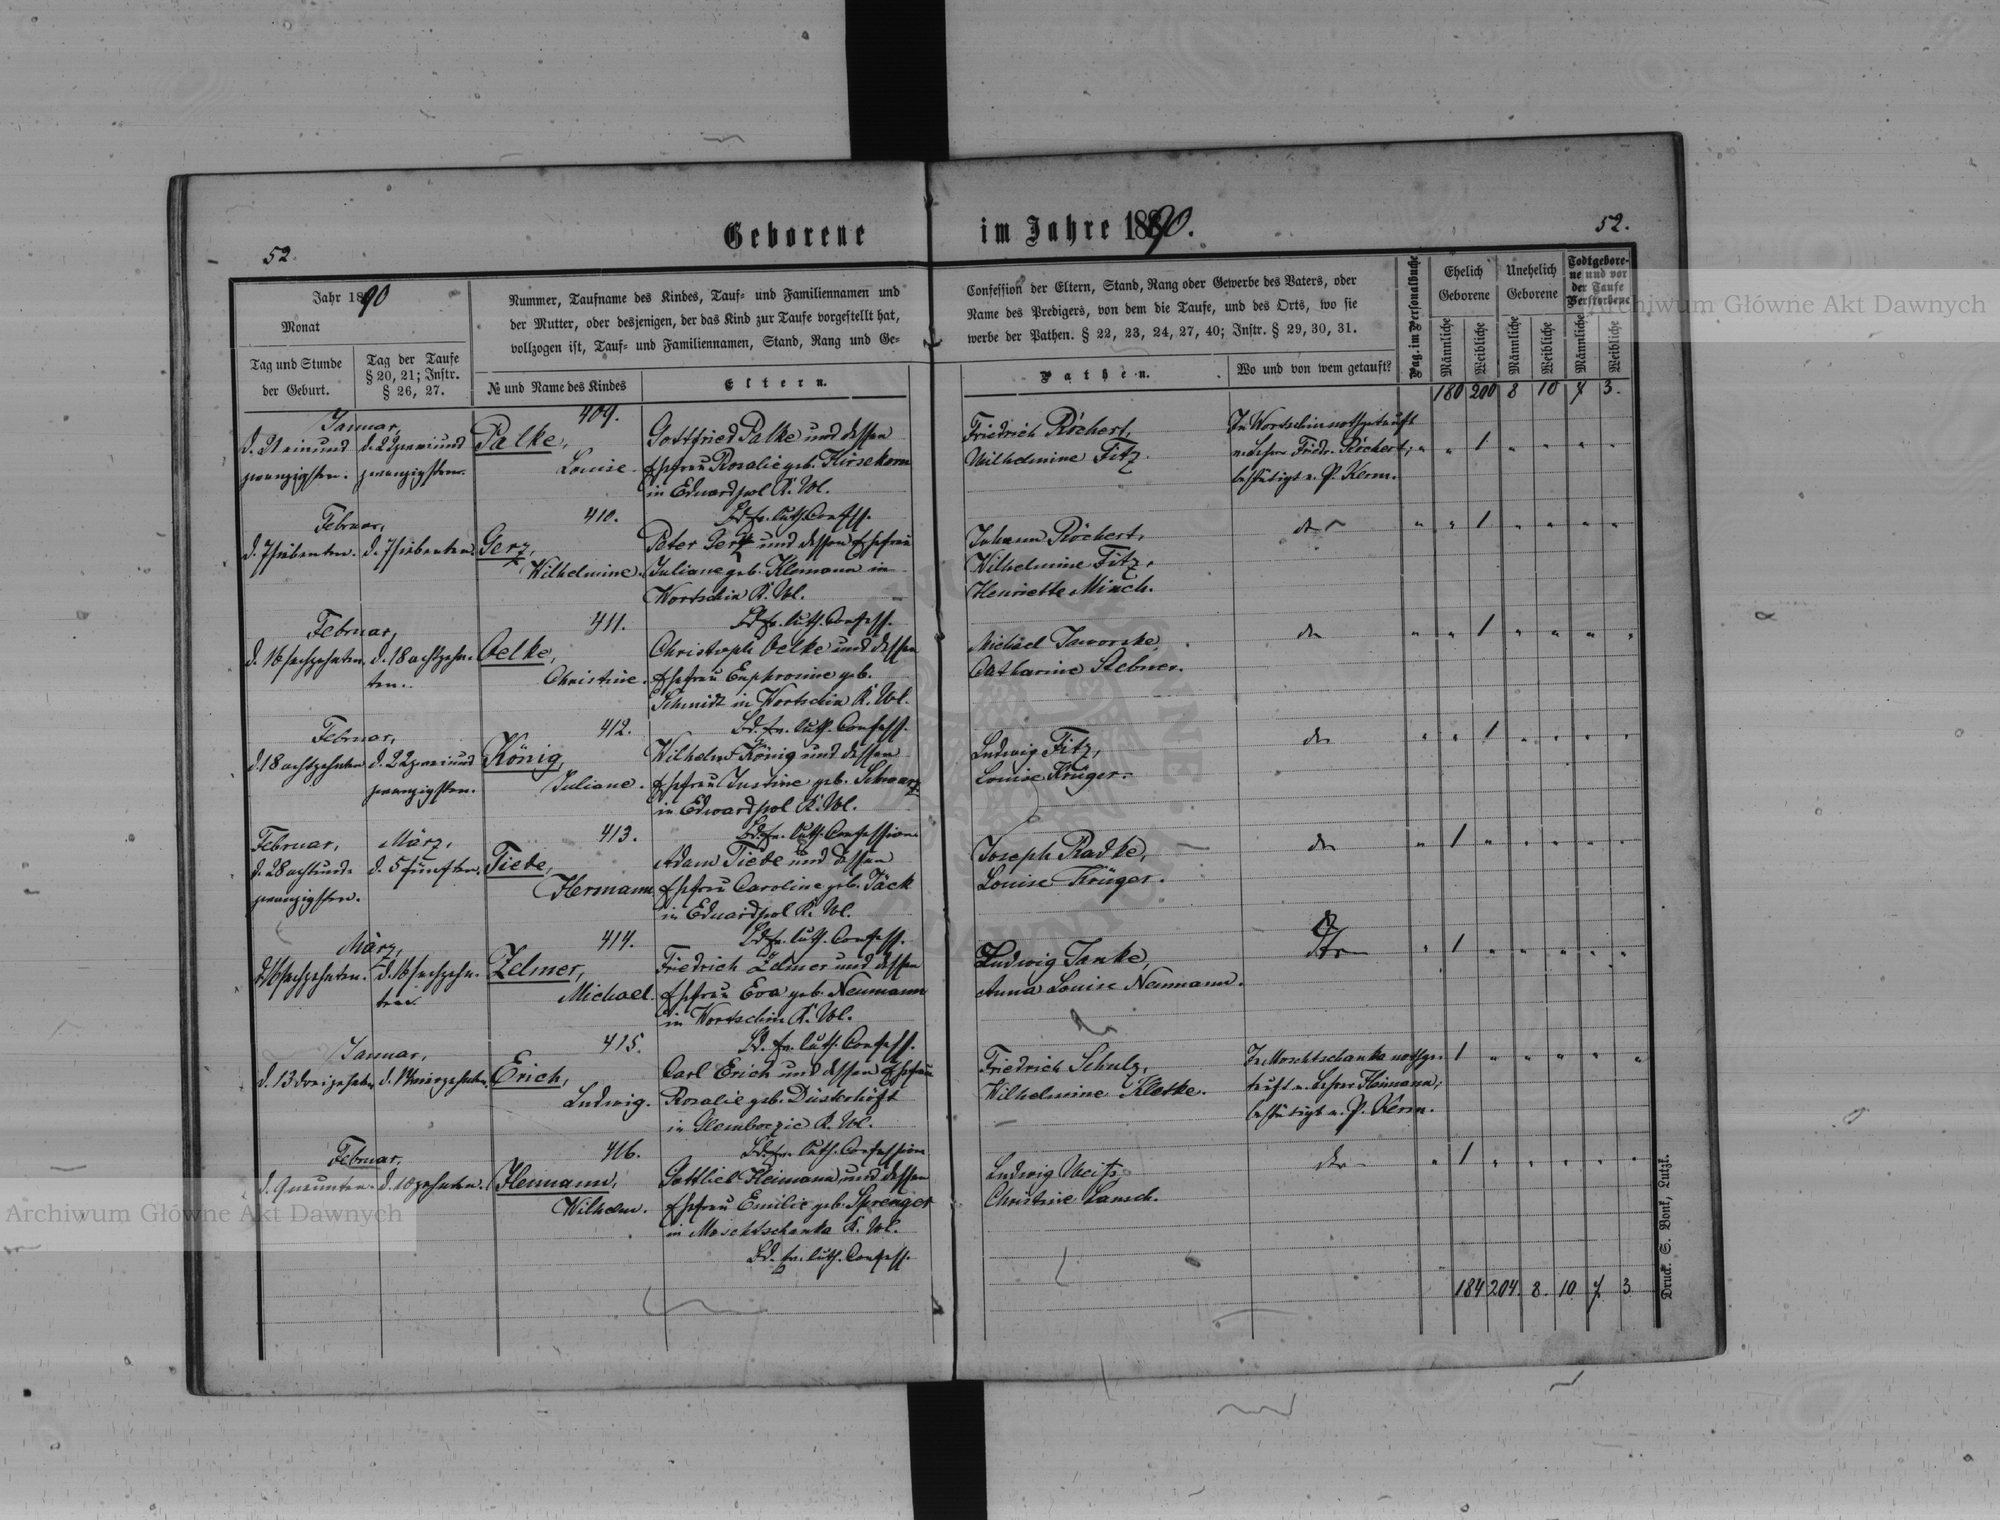 Geborene im Jahre 1890.
52.
52.
Jahr 1890
Monat
Tag und Stunde
der Geburt.
Tag der Taufe
§ 20, 21; Instr.
§ 26, 27.
Nummer, Taufname des Kindes, Tauf- und Familiennamen und
der Mutter, oder desjenigen, der das Kind zur Taufe vorgestellt hat,
vollzogen ist, Tauf- und Familiennamen, Stand, Rang und Ge-
№ und Name des Kindes
Eltern.
Confession der Eltern, Stand, Rang oder Gewerbe des Vaters, oder
Name des Predigers, von dem die Taufe, und des Orts, wo sie
werbe der Pathen. § 22, 23, 24, 27, 40; Instr. § 29, 30, 31.
Pathen.
Wo und von wem getauft?
Pag. im Personalbuche
Ehelich
Geborene
Unehelich
Geborene
Todtgebore-
ne und vor
der Taufe
Verstorbene
Männliche
Weibliche
Männliche
Weibliche
Männliche
Weibliche
180 200 8 10 7 3.
Januar,
d. 21 einund
zwanzigsten.
d. 22 zweiund
zwanzigsten.
409.
Palke,
Louise.
Gottfried Palke und dessen
Ehefrau Rosalie geb. Hirsekorn
in Eduardpol K. Wl.
Bd. ev. luth. Confess.
Friedrich Röchert,
Wilhelmine Fitz.
In Wortschin nothgetauft
v. Lehrer Fridr. Röchert;
bestätigt v. P. Kerm.
" " 1 " " " "
Februar,
d. 7 siebenten.
d. 7 siebenten.
410.
Gerz,
Wilhelmine.
Peter Gerz und dessen Ehefrau
Juliane geb. Klemann in
Wortschin K. Wl.
Bd. ev. luth. Confess.
Johann Röchert,
Wilhelmine Fitz,
Henriette Minch.
dto
" " 1 " " " "
Februar,
d. 16 sechzehnten.
d. 18 achtzehn-
ten.
411.
Oelke,
Christine.
Christoph Oelke und dessen
Ehefrau Euphrosine geb.
Schmidt in Wortschin K. Wl.
Bd. ev. luth. Confess.
Michael Jaworske,
Catharine Stebner.
dto
" " 1 " " " "
Februar,
d. 18 achtzehnten
d. 22 zweiund
zwanzigsten.
412.
König,
Juliane.
Wilhelm König und dessen
Ehefrau Justine geb. Schwarz
in Edwardpol K. Wl.
Bd. ev. luth. Confession
Ludwig Fitz,
Louise Krüger.
dto
" " 1 " " " "
Februar,
d. 28 achtund-
zwanzigsten.
März,
d. 5 fünften.
413.
Tiede,
Hermann.
Adam Tiede und dessen
Ehefrau Caroline geb. Jäck
in Eduardpol K. Wl.
Bd. ev. luth. Confess.
Joseph Radke,
Louise Krüger.
dto
" 1 " " " " "
März,
d. 16 sechzehnten.
d. 16 sechzehn-
ten.
414.
Zelmer,
Michael.
Friedrich Zelmer und dessen
Ehefrau Eva geb. Neumann
in Wortschin K. Wl.
Bd. ev. luth. Confess.
Ludwig Janke,
Anna Louise Neumann.
dto
" 1 " " " " "
Januar,
d. 13 dreizehnten
d. 14 vierzehnten.
415.
Erich,
Ludwig.
Carl Erich und dessen Ehefrau
Rosalie geb. Düsterhöft
in Glemboczie K. Wl.
Bd. ev. luth. Confession
Friedrich Schulz,
Wilhelmine Kletke.
In Moschtschanka nothge-
tauft v. Lehrer Heimann;
bestätigt v. P. Kerm.
1 " " " " "
Februar,
d. 9 neunten.
d. 10 zehnten.
416.
Heimann,
Wilhelm.
Gottlieb Heimann und dessen
Ehefrau Emilie geb. Sprenger
in Moschtschanka K. Wl.
Bd. ev. luth. Confess.
Ludwig Weiss
Christine Lansch.
dto
" 1 " " " " "
184 204 8. 10 7 3
Druck. S. Bonk, Lutzk.
Archiwum Główne Akt Dawnych
Archiwum Główne Akt Dawnych